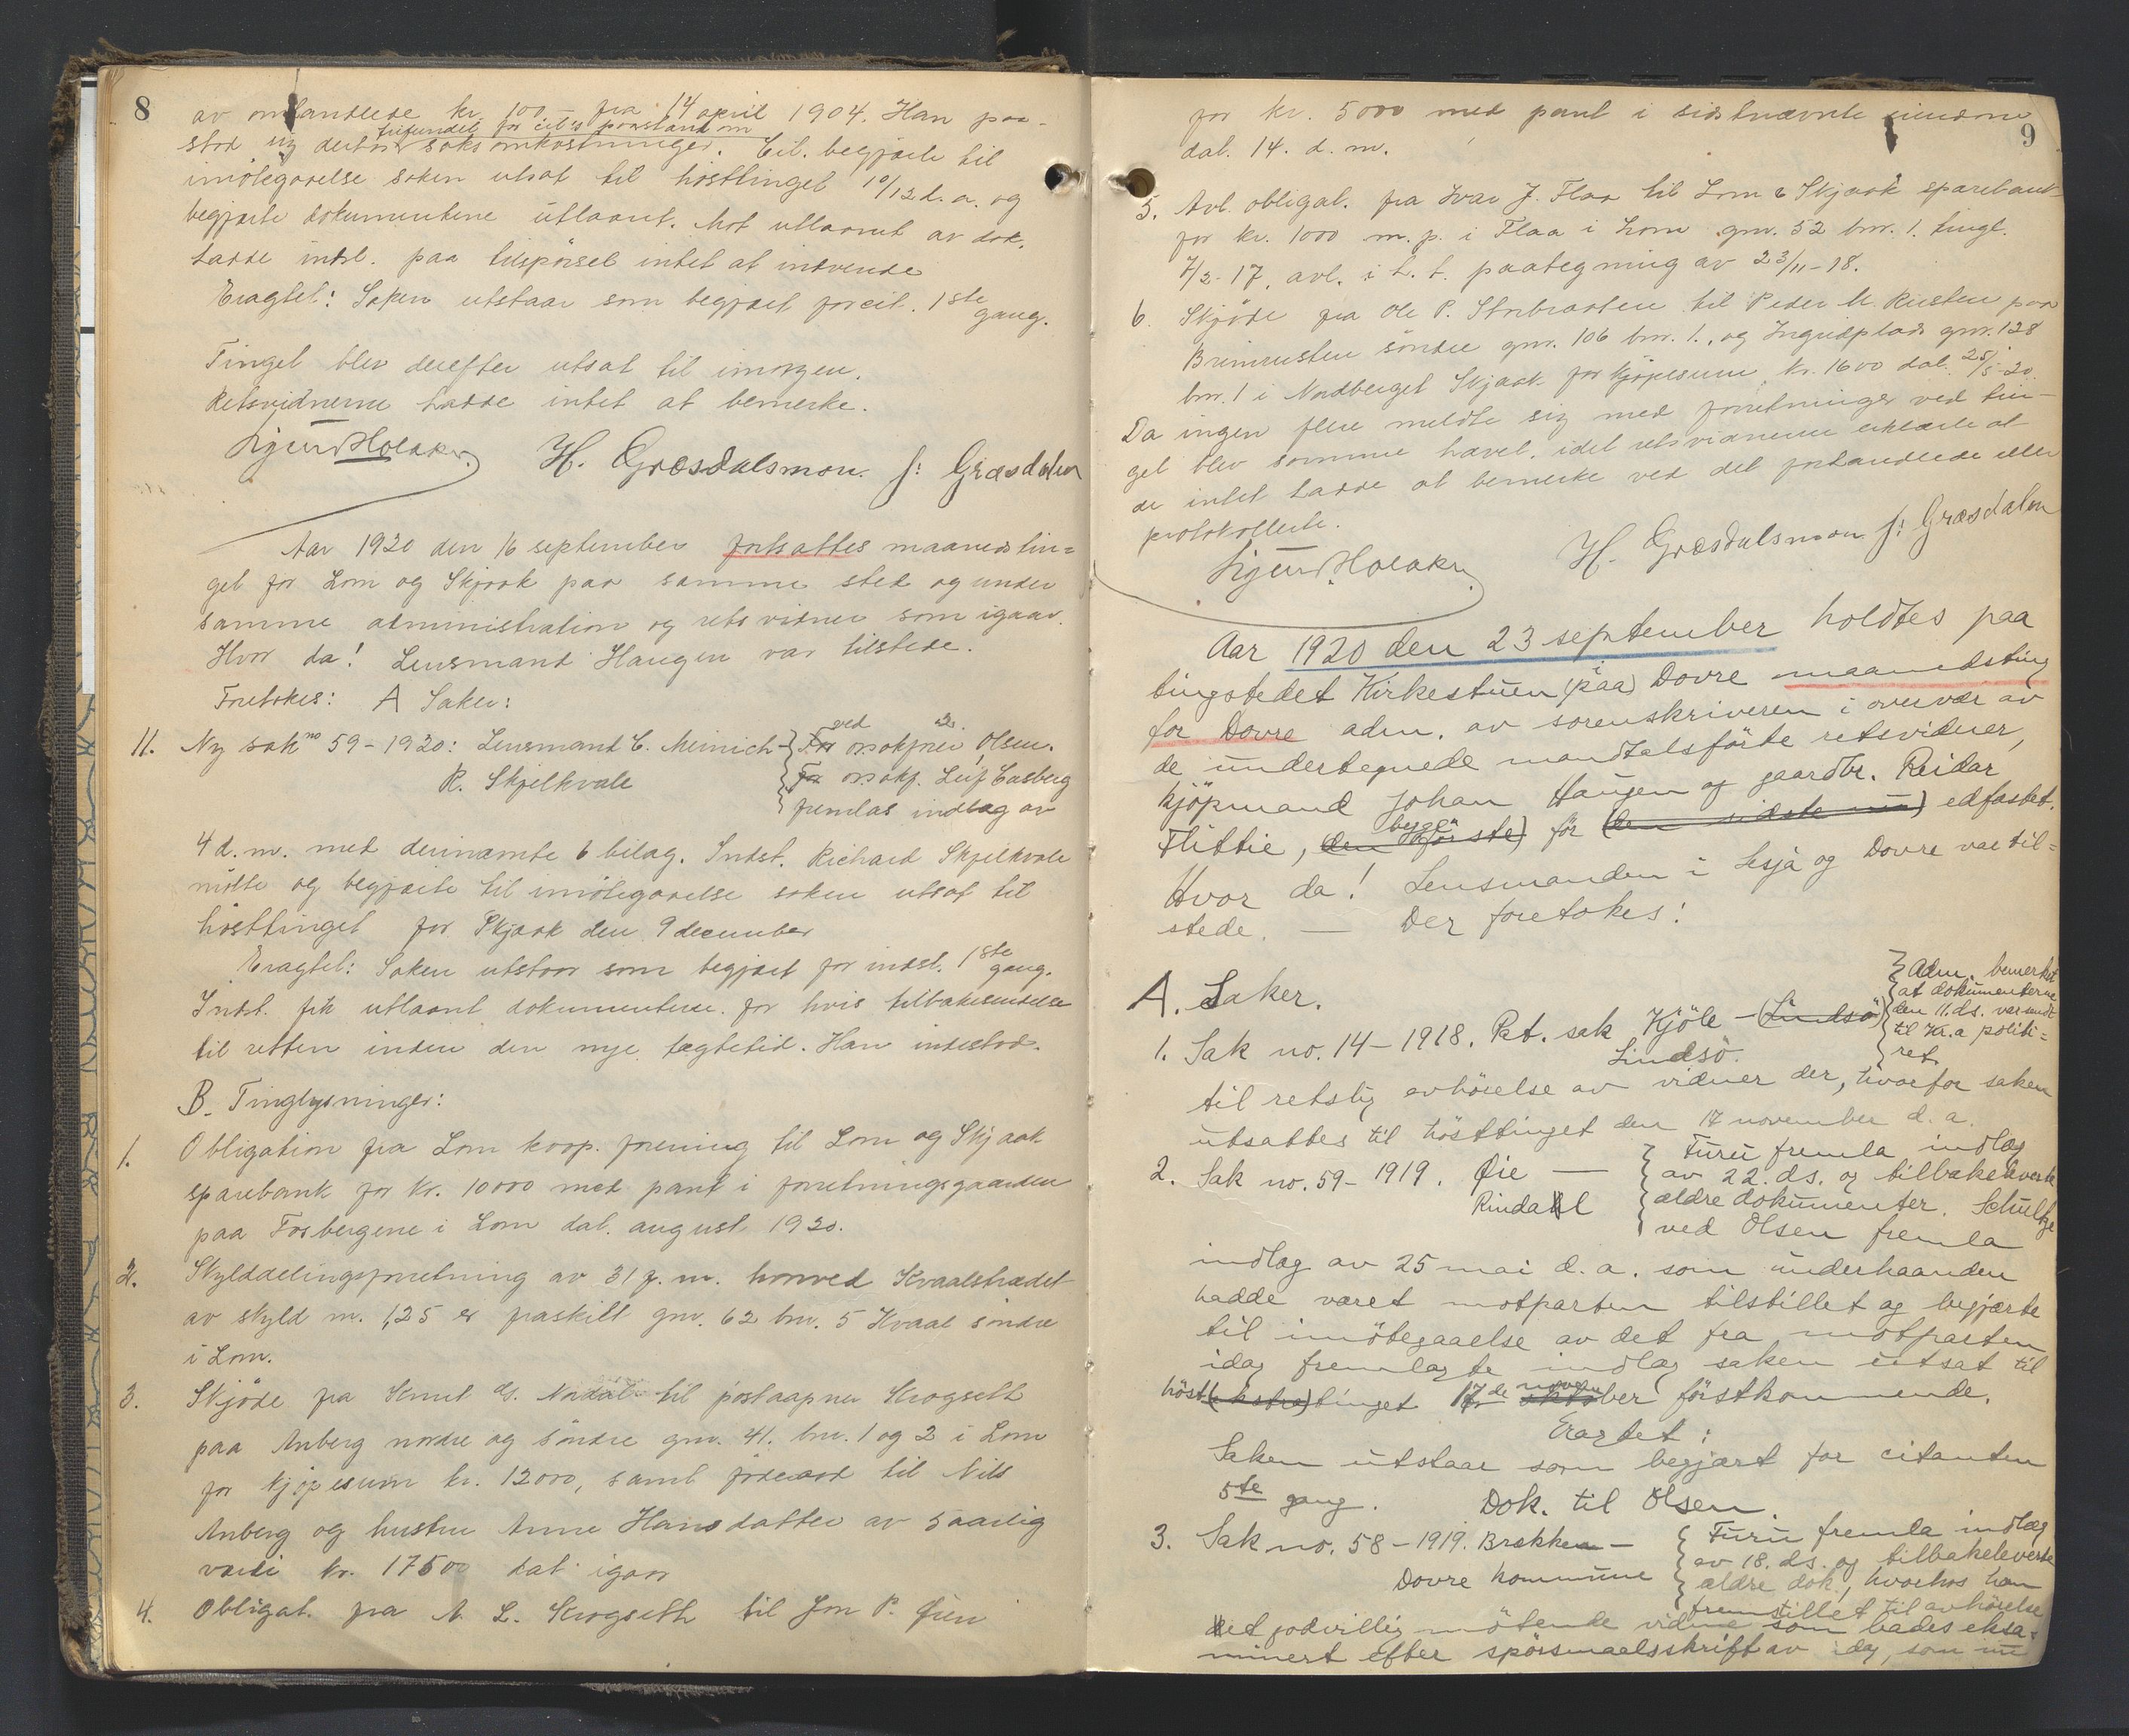 8
av omhandlede kr. 100.- fra 14 april 1904. Han paa-
frifundet for cit.s paastand om
stod sig derhos saksomkostninger. Cit. begjærte til
imøtegaaelse saken utsat til høsttinget 10/12 d. a. og
begjærte dokumentene utlaant. Mot utlaanet av dok.
hadde indst. paa tilspørsel intet at indvende
Eragtet: Saken utstaar som begjært for cit. 1ste
gang.
Tinget blev derefter utsat til imorgen.
Retsvidnerne hadde intet at bemerke.
Sigurd Holaker H. Græsdalsmoen. J: Græsdalen
Aar 1920 den 16 september fortsattes maanedstin=
get for Lom og Skjaak paa samme sted og under
samme administration og retsvidner som igaar.
Hvor da! Lensmand Haugen var tilstede.
Foretokes: A Saker:
11. Ny sak no 59-1920: Lensmand C. Meinich - ved o.r.sakfører Olsen.
R. Skjelkvale For o.r.sakf. Leif Casberg
fremlas indlæg av
4 d. m. med deri nævnte 6 bilag. Indst. Richard Skjelkvale
møtte og begjærte til imøtegaaelse saken utsat til
høsttinget for Skjaak den 9 december
Eragtet: Saken utstaar som begjært for indst. 1ste
gang.
Indst. fik utlaant dokumentene for hvis tilbakesendelse
til retten inden den nye tægtetid. Han indestod.
B. Tinglysninger:
1. Obligation fra Lom koop. forening til Lom og Skjaak
sparebank for kr. 10000 med pant i forretningsgaarden
paa Fosbergene i Lom dat. august 1920.
2. Skylddelingsforretning av 31 f. m. hvorved Kvaalstrædet
av skyld m. 1,25 er fraskilt gnr. 62 bnr. 5 Kvaal søndre
i Lom.
3. Skjøde fra Knut O. Nordal til postaapner Krogseth
paa Anberg nordre og søndre gnr. 41. bnr. 1 og 2 i Lom
for kjøpesum kr. 12000, samt føderaad til Nils
Anberg og hustru Anne Hansdatter av 5 aarlig
værdi kr. 17500 dat. igaar
4. Obligat. fra A. L. Krogseth til Jon P. Øien
9
for kr. 5000 med pant i sidstnævnte eiendom
dat. 14. d. m.
5. Avl. obligat. fra Ivar J. Flaa til Lom & Skjaak sparebank
for kr. 1000 m. p. i Flaa i Lom gnr. 52 bnr. 1. tingl.
7/2-17, avl. i h. t. paategning av 23/11-18.
6. Skjøde fra Ole P. Storbraaten til Peder M. Rusten paa
Brimrusten søndre gnr. 106 bnr. 1., og Ingridplads gnr. 128
bnr. 1 i Nordberget Skjaak for kjøpesum kr. 1600 dat. 25/5-20.
Da ingen flere meldte sig med forretninger ved tin-
get blev samme hævet, idet retsvidnerne erklærte at
de intet hadde at bemerke ved det forhandlede eller
protokollerte.
Sigurd Holaker H. Græsdalsmoen J: Græsdalen
Aar 1920 den 23 september holdtes paa
tingstedet Kirkestuen (paa) i Dovre maanedsting
for Dovre adm. av sorenskriveren i overvær av
de undertegnede mandtalsførte retsvidner,
kjøpmand Johan Haugen og gaardbr. Reidar
Flittie, (den første) begge før (den sidste nu) edfæstet.
Hvor da! Lensmanden i Lesja og Dovre var til=
stede. — Der foretokes:
A. Saker.
1. Sak no. 14-1918. Pat. sak Kjöle - (Lindsø)
Lindsø.
Adm. bemerket
at dokumenterne
den 11. ds. var sendt
til Kr.a politi=
ret
til retslig avhørelse av vidner der, hvorfor saken
utsattes til høsttinget den 17 november d. a.
2. Sak no. 59-1919. Øie —
Rindal
Furu fremla indlæg
av 22. ds. og tilbakeleverte
ældre dokumenter. Schultze
ved Olsen fremla
indlæg av 25 mai d. a. som underhaanden
hadde været motparten tilstillet og begjærte
til imøtegaaelse av det fra motparten
idag fremlagte indlæg saken utsat til
høst(ekstra)tinget 17de november førstkommende.
Eragtet:
Saken utstaar som begjært for citanten
5te gang. Dok. til Olsen.
3. Sak no. 58-1919. Brække -
Dovre kommune
Furu fremla indlæg
av 18. ds. og tilbakeleverte
ældre dok., hvorhos han
fremstillet til avhørelse
det godvillig møtende vidne som bades eksa=
minert efter spørsmaalsskrift av idag, som nu